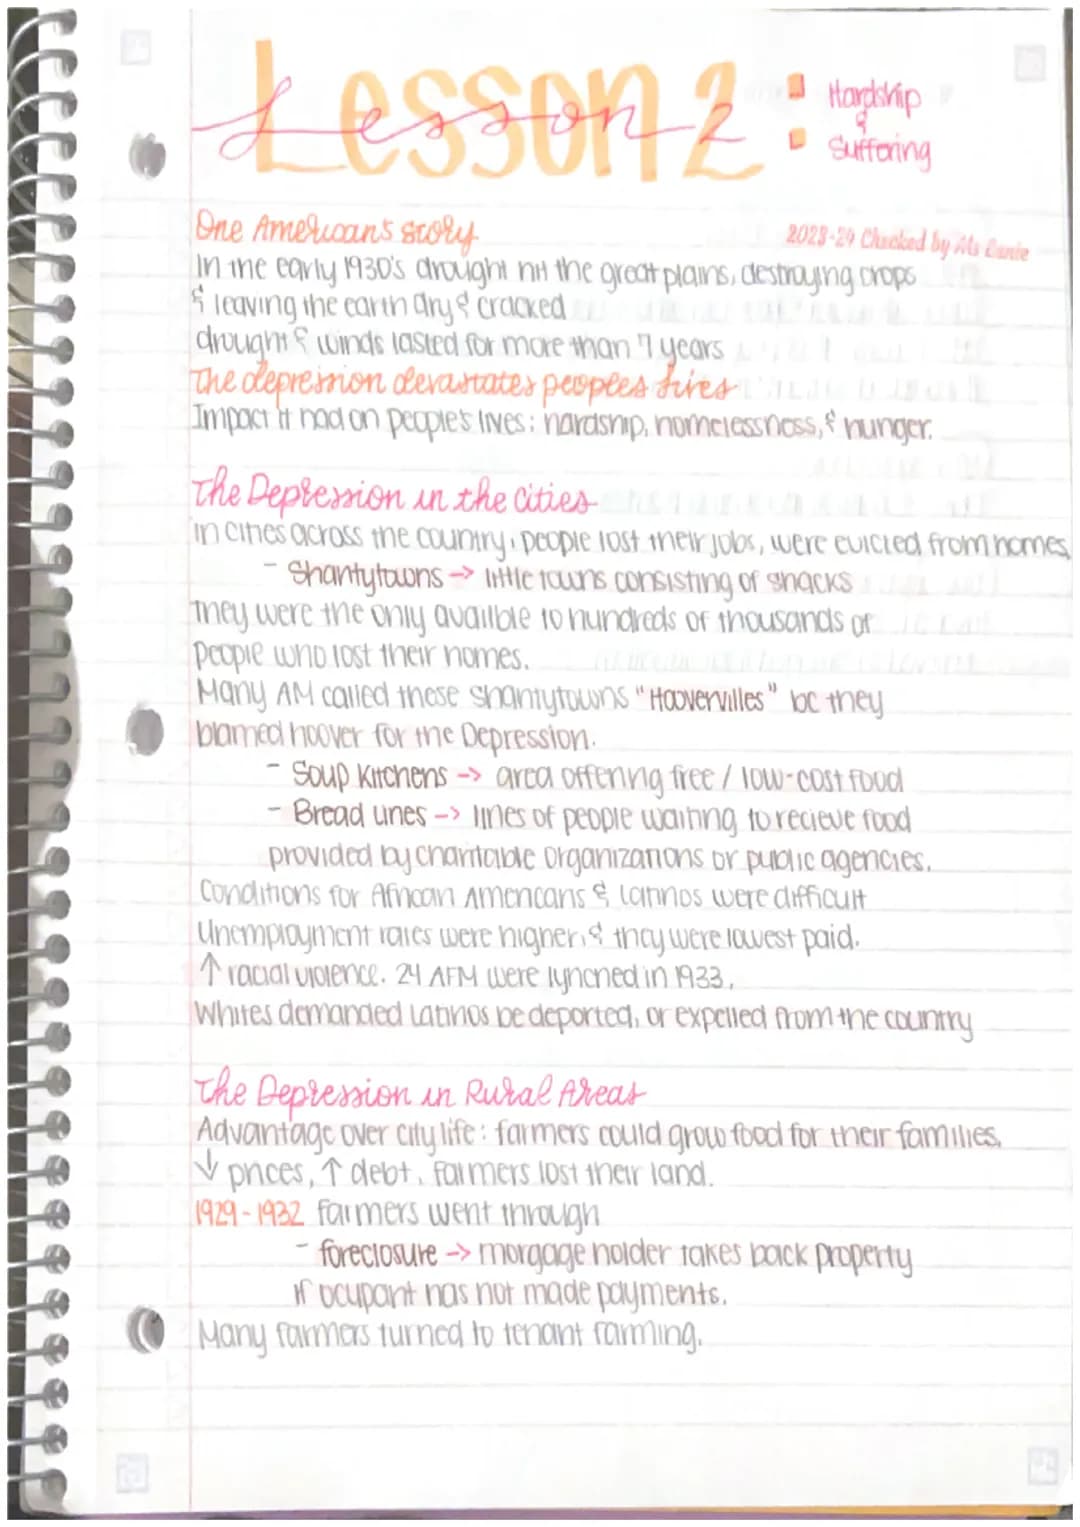 Lesson 2: Hardship
&
Suffering
One American's story
2023-24 Checked by Ms
In the early 1930's drought hit the great plains, destroying crops
& leaving the earth dry & cracked
drought & winds lasted for more than 7 years
The depression devastates peoples lives
Impact it had on people's lives: hardship, homelessness, & hunger.
The Depression in the cities
in cities across the country, people lost their jobs, were evicted from homes,
- Shantytowns -> little towns consisting of shacks
They were the only availble to hundreds of thousands of
people who lost their homes.
Many AM called these shantytowns "Hoovervilles" bc they
blamed hoover for the Depression.
- Soup Kitchens -> area offering free / low-cost food
- Bread Lines -> lines of people waiting to recieve food
provided by charitable organizations or public agencies.
Conditions for African Americans & Latinos were difficult
Unemployment rates were higher, & they were lowest paid.
↑ racial violence. 24 AFM were lynched in 1933.
Whites demanded Latinos be deported, or expelled from the country
The Depression in Rural Areas
Advantage over city life: farmers could grow food for their families.
↓ prices, ↑ debt, farmers lost their land.
1929-1932 farmers went through
- foreclosure -> morgage holder takes back property
if ocupant has not made payments.
Many farmers turned to tenant farming.